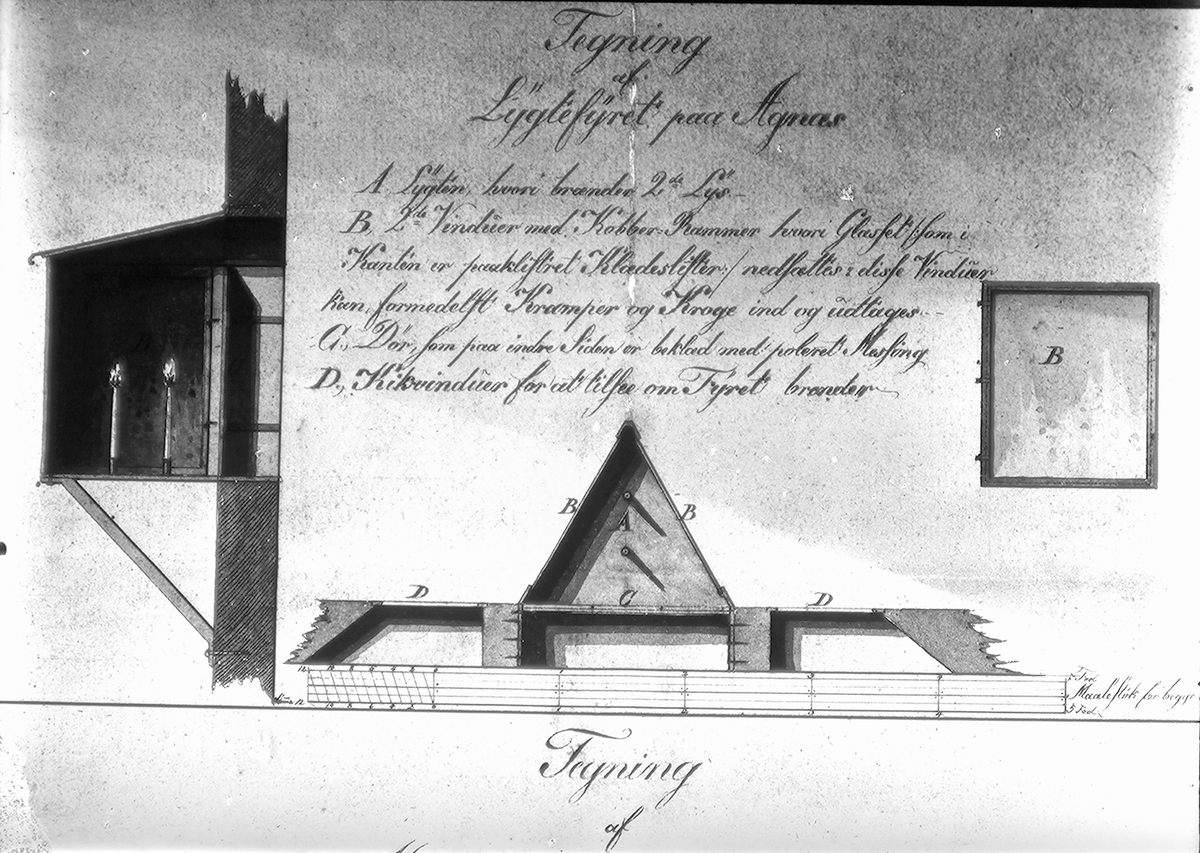 Tegning
af
Lÿgtefÿret paa Agnæs
A Lÿgten, hvori brænder 2de Lÿs.
B, 2de Vindüer med Kobber-Rammer hvori Glasset /:som i
Kanten er paaklistret Klædeslister:/ nedsættes: disse Vindüer
kan, formedelst Kramper og Kroge ind og üdtages.
C., Dör, som paa indre Siden er beklæd med poleret Messing
D., Kikvindüer for at tilsee om Fyret brænder
B
B
B
A
C
D
D
12 10 8 6 4 2 0
1 2 3 4
5 Fod
Maalestok for begge
5 Fod
12
Tegning
af